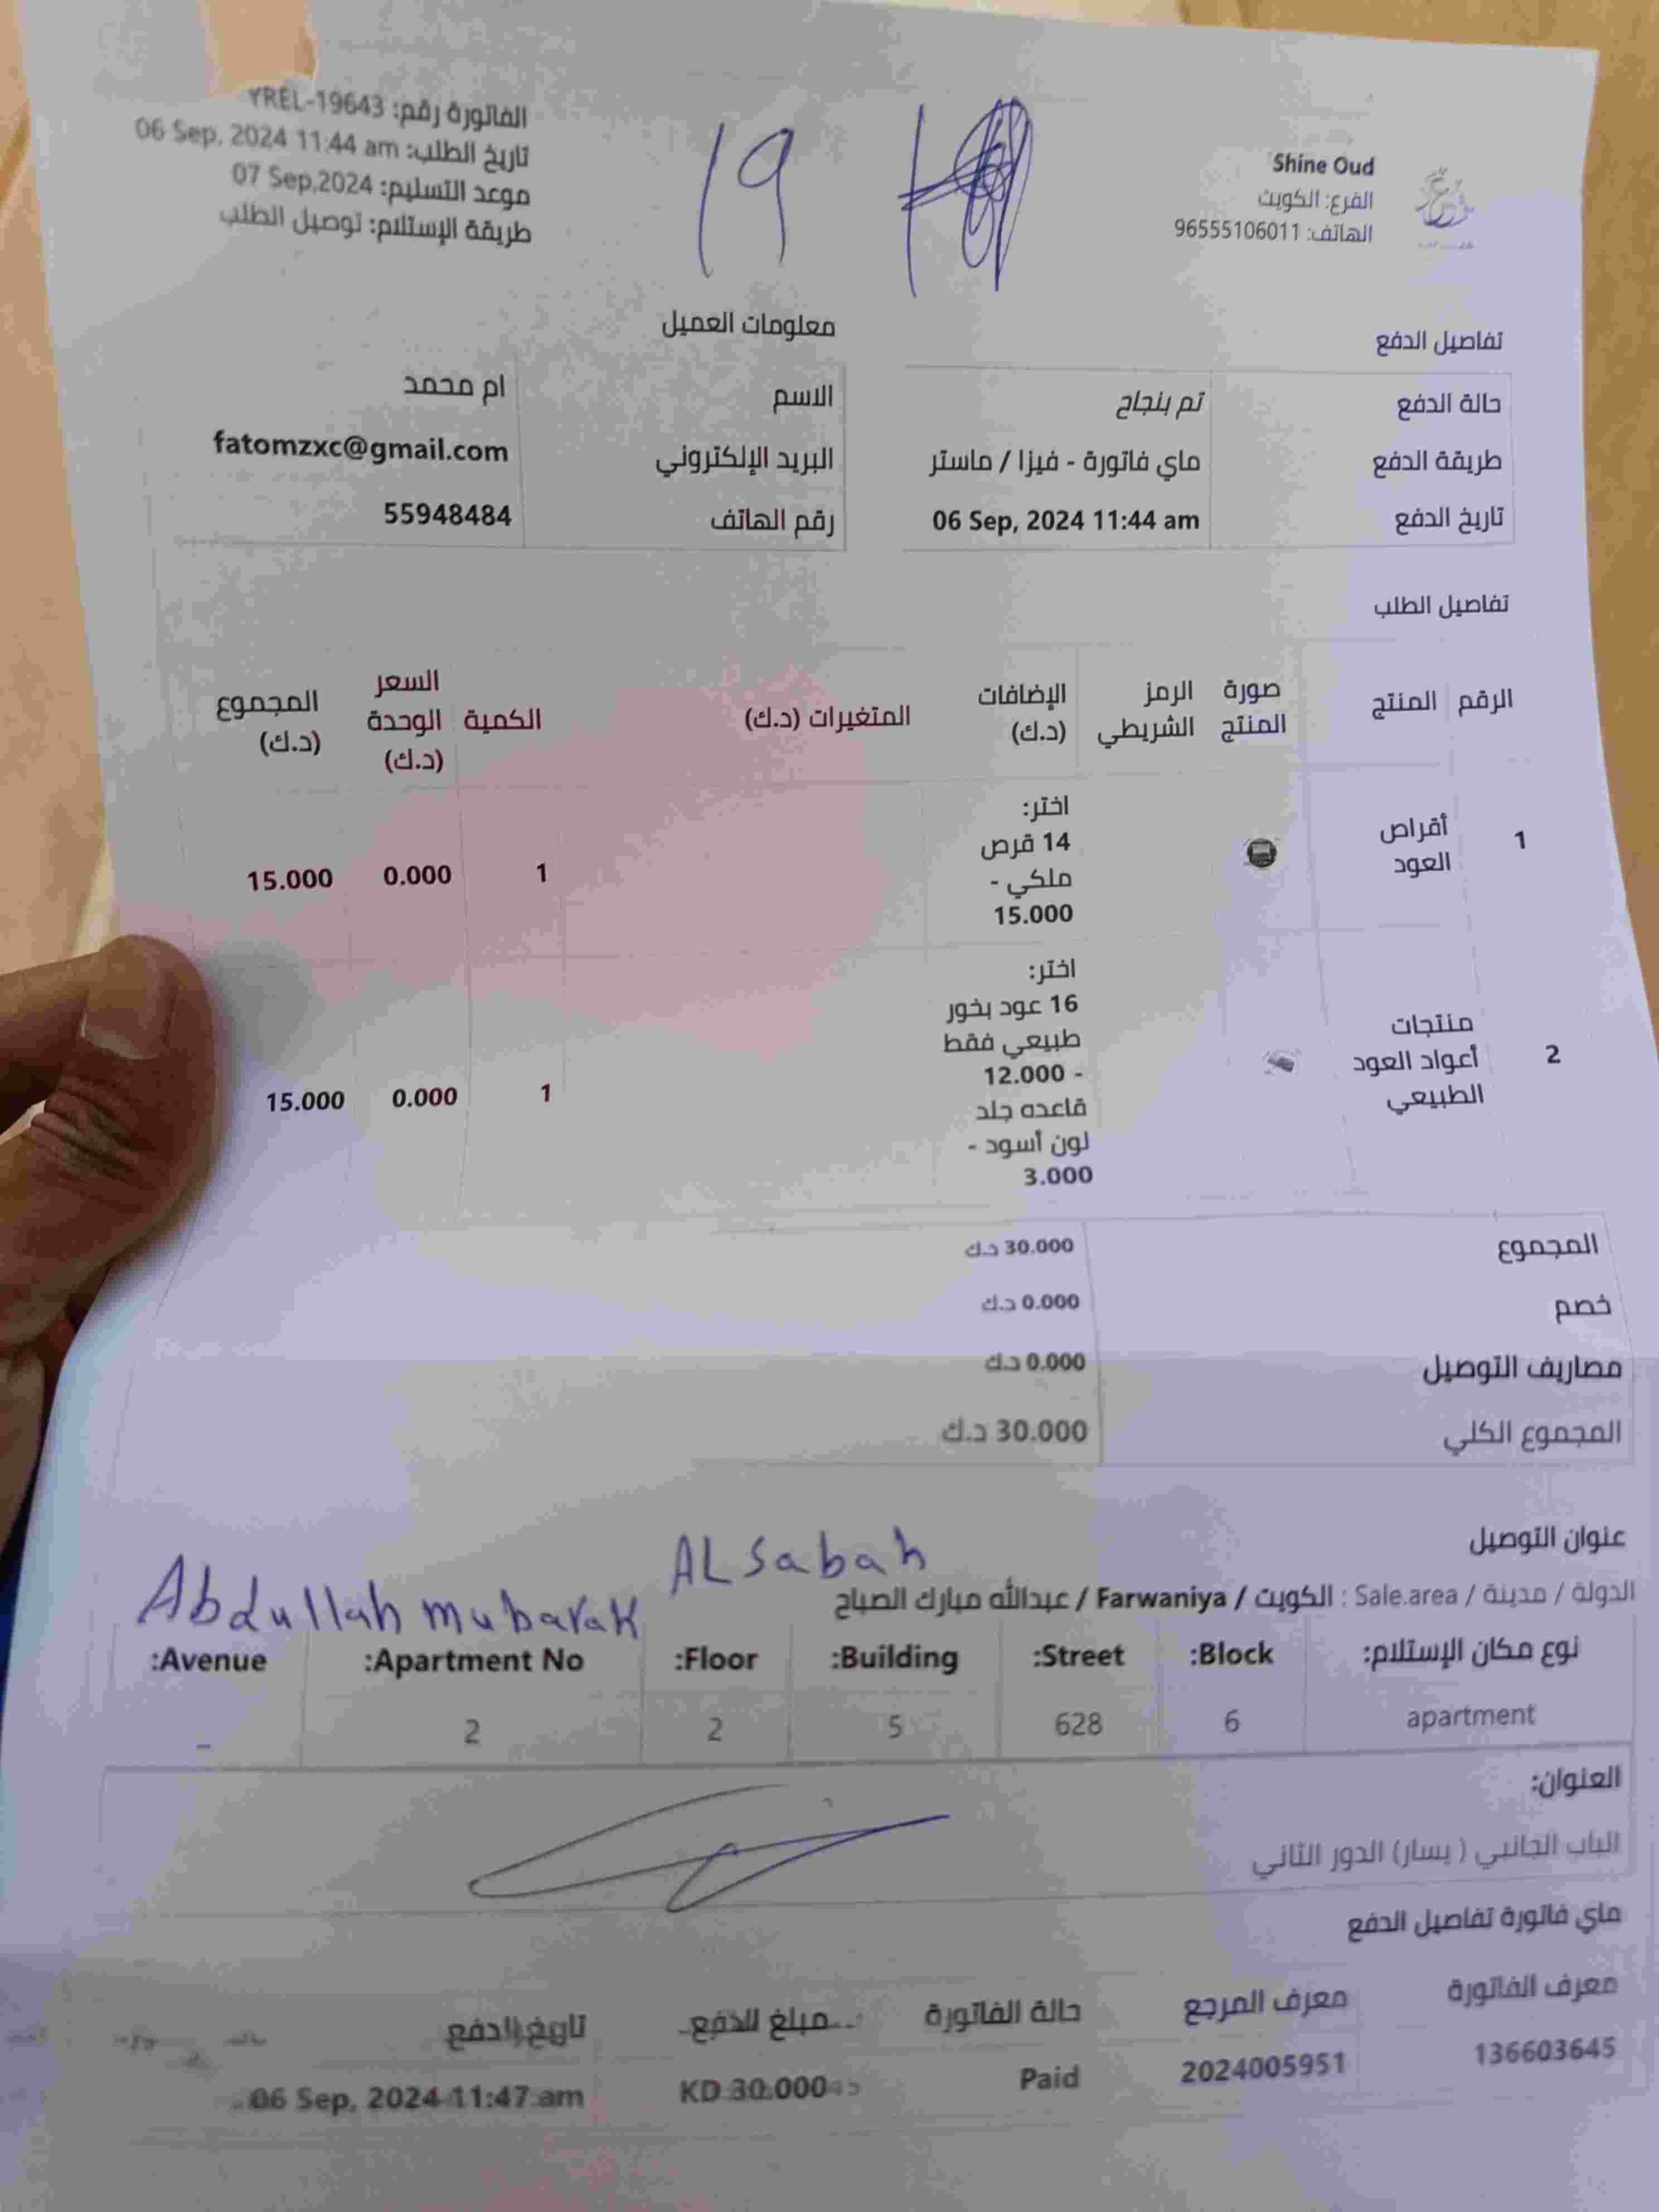 Shine Oud
الفرع: الكويت
الهاتف: 96555106011
19
الفاتورة رقم: YREL-19643
تاريخ الطلب: 06 Sep, 2024 11:44 am
موعد التسليم: 07 Sep,2024
طريقة الإستلام: توصيل الطلب
تفاصيل الدفع
حالة الدفع تم بنجاح
طريقة الدفع ماي فاتورة - فيزا / ماستر
تاريخ الدفع 06 Sep, 2024 11:44 am
معلومات العميل
الاسم ام محمد
البريد الإلكتروني fatomzxc@gmail.com
رقم الهاتف 55948484
تفاصيل الطلب
الرقم المنتج صورة المنتج الرمز الشريطي الإضافات (د.ك) المتغيرات (د.ك) الكمية السعر الوحدة (د.ك) المجموع (د.ك)
1 أقراص العود اختر: 14 قرص ملكي - 15.000 1 0.000 15.000
2 منتجات أعواد العود الطبيعي اختر: 16 عود بخور طبيعي فقط - 12.000 قاعده جلد لون أسود - 3.000 1 0.000 15.000
المجموع 30.000 د.ك
خصم 0.000 د.ك
مصاريف التوصيل 0.000 د.ك
المجموع الكلي 30.000 د.ك
عنوان التوصيل
Abdullah mubarak ALsabah
الدولة / مدينة / Sale.area : الكويت / Farwaniya / عبدالله مبارك الصباح
نوع مكان الإستلام: Block: Street: Building: Floor: Apartment No: Avenue:
apartment 6 628 5 2 2 -
العنوان:
الباب الجانبي ( يسار) الدور الثاني
ماي فاتورة تفاصيل الدفع
معرف الفاتورة معرف المرجع حالة الفاتورة مبلغ الدفع تاريخ الدفع
136603645 2024005951 Paid KD 30.000 06 Sep, 2024 11:47 am